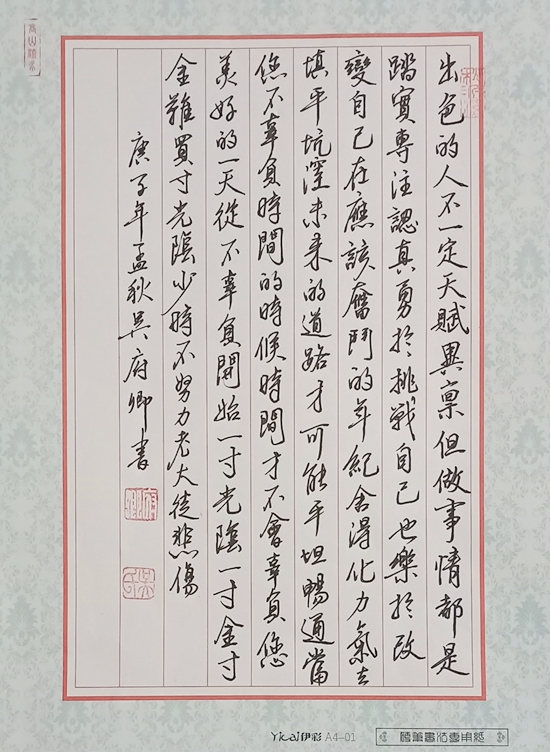 出色的人不一定天賦異稟但做事情都是
踏實專注認真勇於挑戰自己也樂於改
變自己在應該奮鬥的年紀舍得化力氣去
填平坑窪未來的道路才可能平坦暢通當
您不辜負時間的時候時間才不會辜負您
美好的一天從不辜負開始一寸光陰一寸金寸
金難買寸光陰少時不努力老大徒悲傷
庚子年孟秋吴府卿書
Yicai伊彩 A4-01
國筆書法專用紙